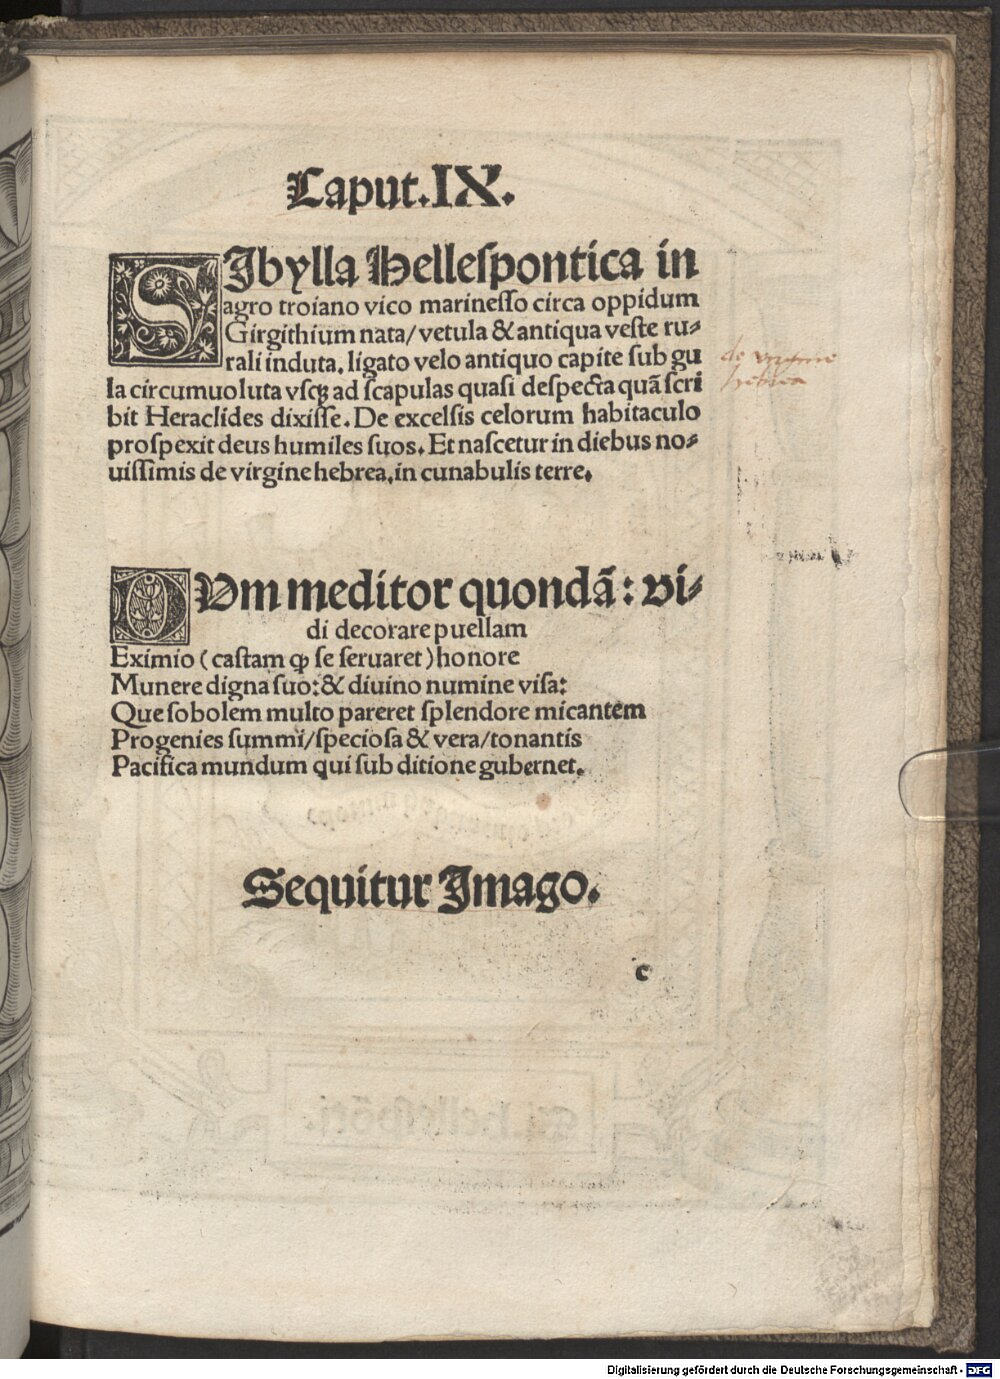 Caput.IX.
SIbylla Hellespontica in
agro troiano vico marinesso circa oppidum
Girgithium nata/vetula & antiqua veste ru-
rali induta. ligato velo antiquo capite sub gu
la circumuoluta vsqꝫ ad scapulas quasi despecta quã scri
bit Heraclides dixisse. De excelsis celorum habitaculo
prospexit deus humiles suos. Et nascetur in diebus no-
uissimis de virgine hebrea, in cunabulis terre.
DVm meditor quondã: vi-
di decorare puellam
Eximio (castam ꝙ se seruaret) honore
Munere digna suo: & diuino numine visa:
Que sobolem multo pareret splendore micantem
Progenies summi/speciosa & vera/tonantis
Pacifica mundum qui sub ditione gubernet.
Sequitur Imago.
c
de virgine
hebrea
Digitalisierung gefördert durch die Deutsche Forschungsgemeinschaft - DFG